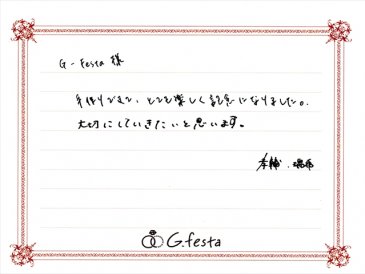 G-festa 様
手作りできて、とても楽しく記念になりました。
大切にしていきたいと思います。
孝輔・瑞希
G.festa